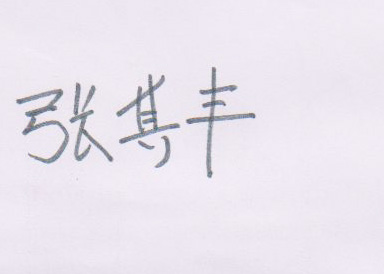 张其丰